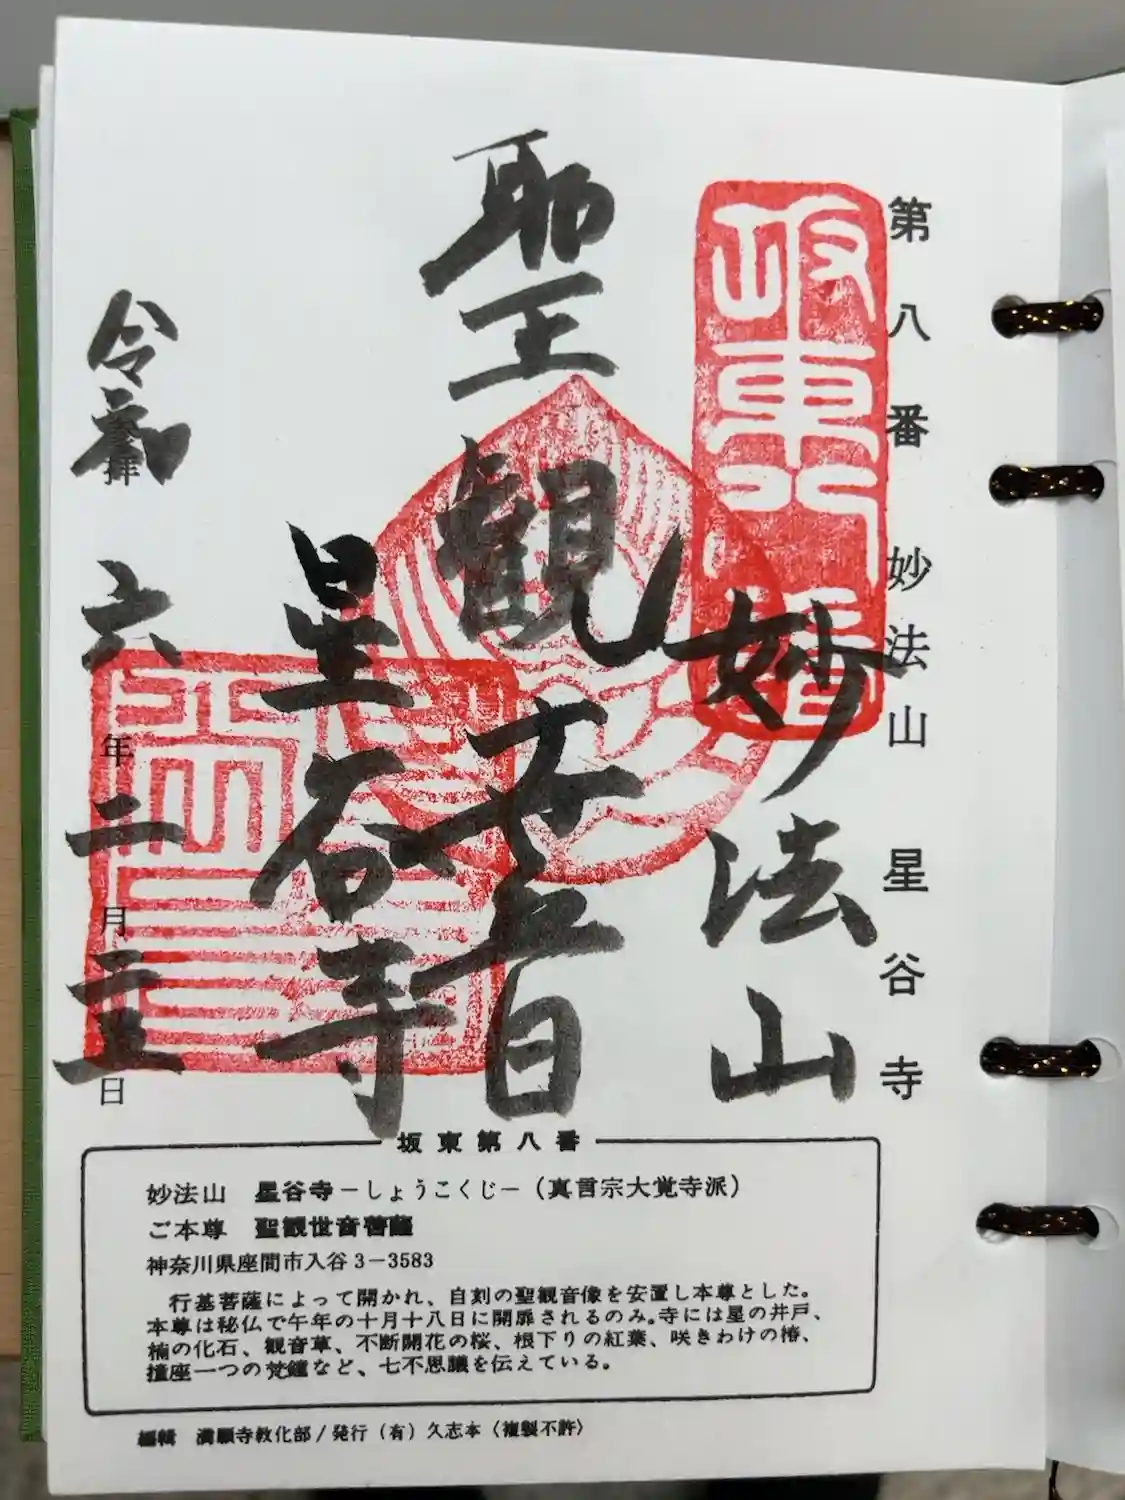 第八番 妙法山 星谷寺
坂東八番
妙法山
聖観世音
星谷寺
令和六年二月二十三日
拝
坂東第八番
妙法山 星谷寺－しょうこくじ－（真言宗大覚寺派）
ご本尊 聖観世音菩薩
神奈川県座間市入谷3－3583
行基菩薩によって開かれ、自刻の聖観音像を安置し本尊とした。
本尊は秘仏で午年の十月十八日に開扉されるのみ。寺には星の井戸、
楠の化石、観音草、不断開花の桜、根下りの紅葉、咲きわけの椿、
撞座一つの梵鐘など、七不思議を伝えている。
編輯 満願寺教化部／発行（有）久志本〈複製不許〉